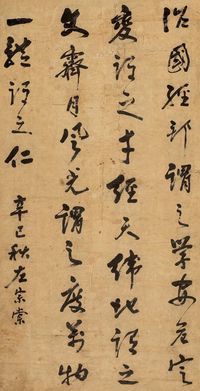 治國經邦謂之學安危定
變謂之才經天緯地謂之
文霽月風光謂之度萬物
一體謂之仁
辛巳秋左宗棠